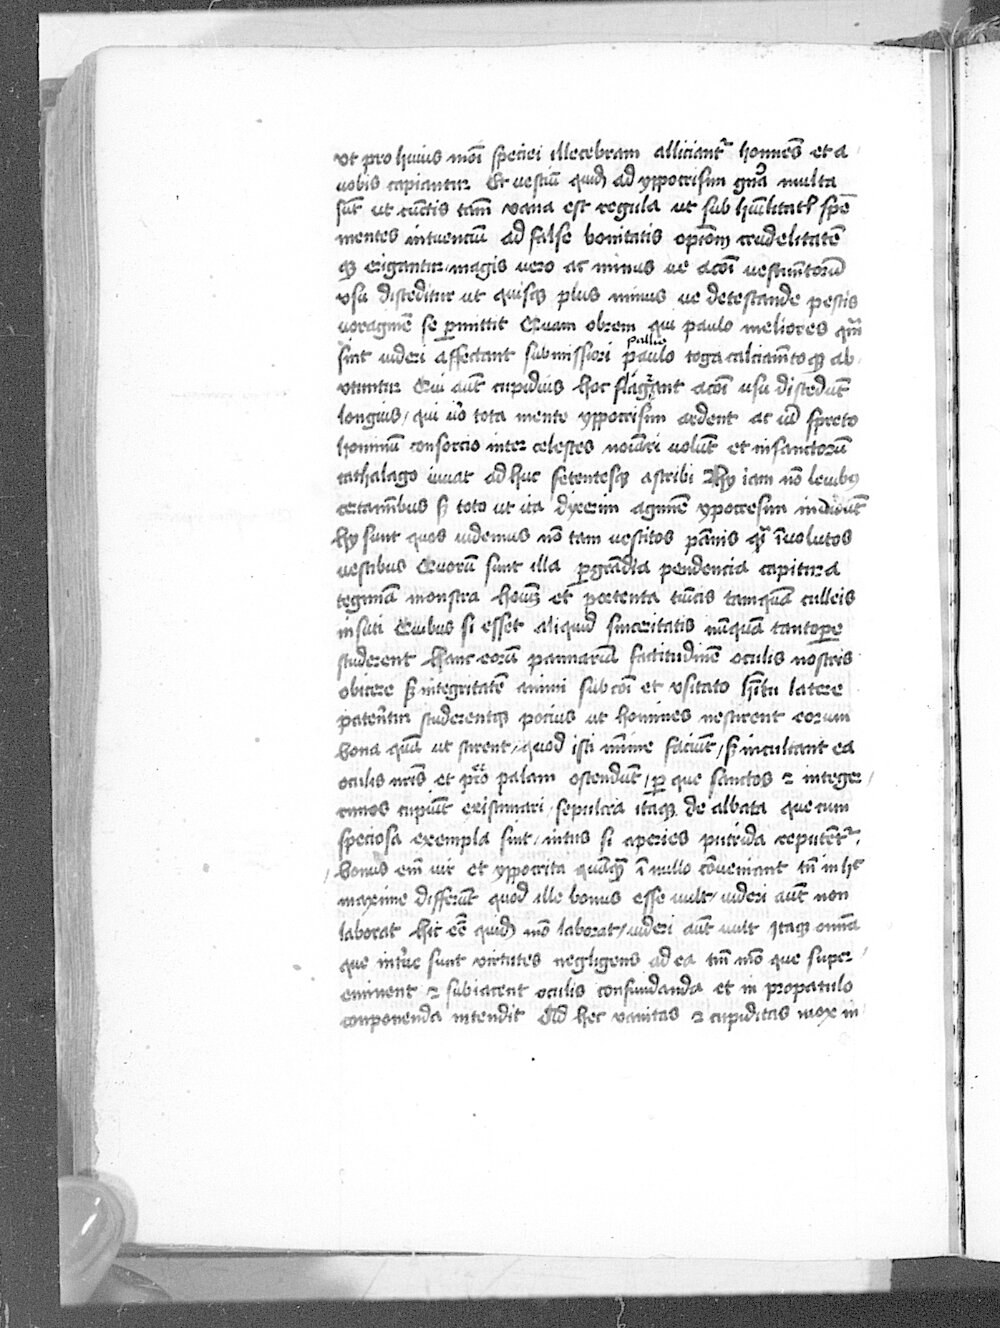 ut pro huius mōi speciei illecebram alliciantʳ homines et a
uobis capiantur Et uestiū quidē ad ypocrisim gn̄a multa
sūt ut cūctis tam̄ vana est regula ut sub hūilitatꝭ spē
mentes intuenciū ad false bonitatis opiōnē credelitatē
qꝫ erigantur magis uero ac minus ue acōi uestimētorū
usu disceditur ut quisqꝫ plus minus ue detestande pestis
uoraginē se ꝑmittit Quam obrem qui paulo meliores qm̄
sint uideri affectant submissiori pallio paulo toga calciamētoqꝫ ab
utuntur Qui aūt cupidius hoc flagrant acōi usu discedūt
longius / qui u͞o tota mente ypocrisim ardent ac ud̄ spreto
hominū consorcio inter celestes noīari uolūt et in sanctorū
cathalago iuuat adhuc se tentesqꝫ ascribi Hy iam nō leuibꝯ
certaminibus sꝫ toto ut ita dyxerim agmine ypocresim indūt
Hy sunt quos uidemus nō tam uestitos pānis qm̄ īuolutos
uestibus Quorū sunt illa ꝑgrādia pendencia capitura
tegminā monstra hoīm et portenta tūicis tamquā culleis
insuti Quibus si esset aliquid sinceritatis nūquā tantopere
studerent hanc eorū pannarū factitudinē oculis nostris
obicere sꝫ integritatē animi sub cōi et usitato hītu latere
paterētur studerentqꝫ pocius ut homines nescirent eorum
bona quā ut scirent / quod isti mīime faciūt / sꝫ inculcant ea
oculis nr̄is et palam ostendūt / ꝑ que sanctos ⁊ integer/
rimos cupiūt existimari / sepulcra itaqꝫ de albata que cum
speciosa exempla sint / intus si aperies putrida reputētʳ /
bonus em̄ uir et ypocrita quāqꝫ ī nullo cōueniant tn̄ in hc
maxime differūt quod ille bonus esse uult / uideri aūt non
laborat hic ee͞ quidē nō laborat / uideri aūt uult Itaqꝫ omīa
que int͞uc sunt virtutes negligens ad ea tm̄ mō que super/
eminent ⁊ subiacent oculis confundanda et in propatulo
componenda intendit Qd̄ hec vanitas ⁊ cupiditas mox in